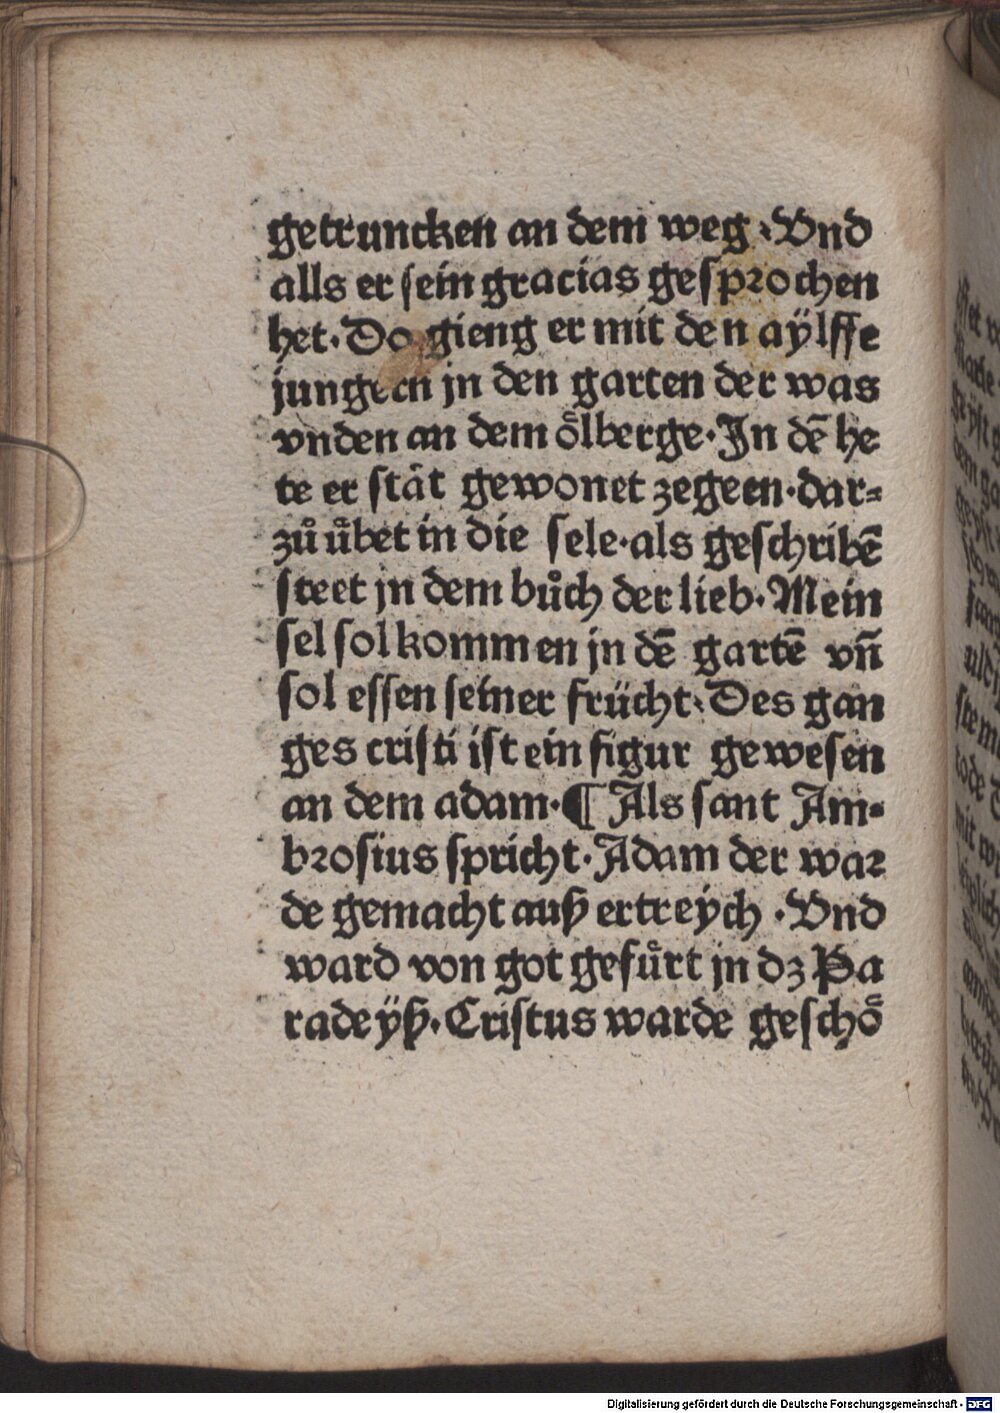 getruncken an dem weg · Vnd
alls er ſein gracias geſprochen
het · Do gieng er mit den aÿlffe
jungern jn den garten der was
vnden an dem oͤlberge · Jn dē he
te er ſtaͤt gewonet zegeen · dar⸗
zuͦ uͤbet in die ſele · als geſchribē
ſteet jn dem buͦch der lieb · Mein
ſel ſol kommen jn dē gartē vn̄
ſol eſſen ſeiner frücht · Des gan
ges criſti iſt ein figur geweſen
an dem adam · ¶ Als ſant Am⸗
broſius ſpricht · Adam der war
de gemacht auß ertreÿch · Vnd
ward von got gefuͤrt jn dz Pa
radeÿß · Criſtus warde geſchoͤ
Digitalisierung gefördert durch die Deutsche Forschungsgemeinschaft - DFG